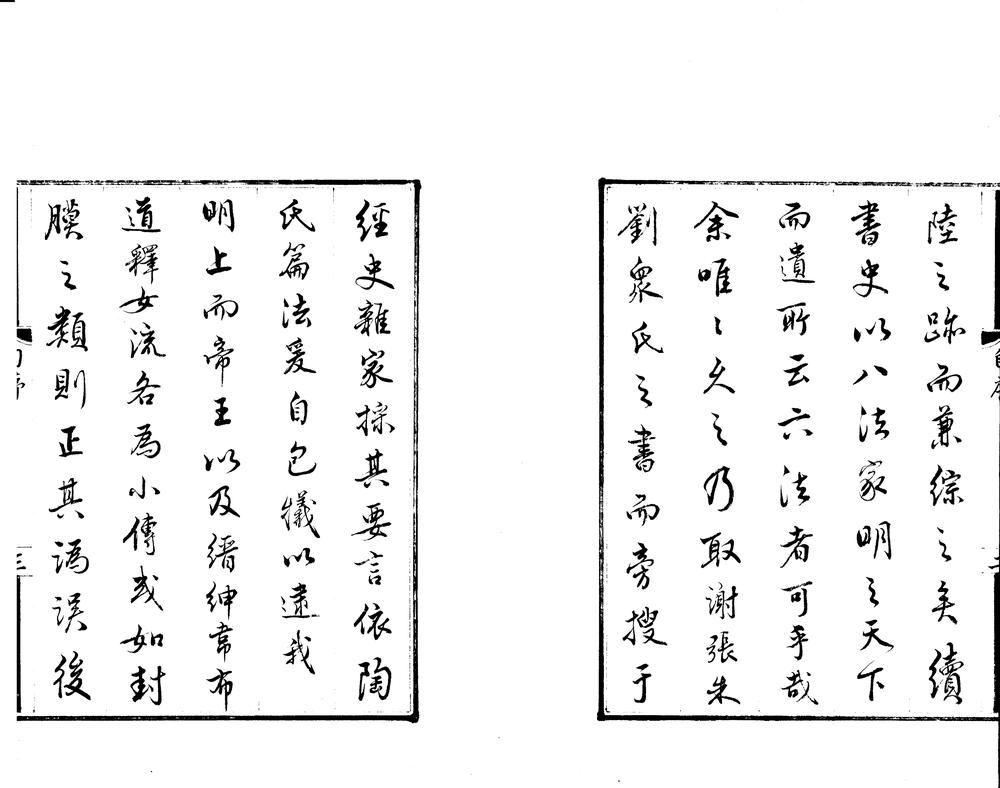 陸之跡而兼綜之矣續
書史以八法家明之天下
而遺所云六法者可乎哉
余唯〻久之乃取謝張朱
劉衆氏之書而旁搜于
經史雜家採其要言依陶
氏篇法爰自包犧以逮我
明上而帝王以及縉紳韋布
道釋女流各為小傳或如封
膜之類則正其譌誤後